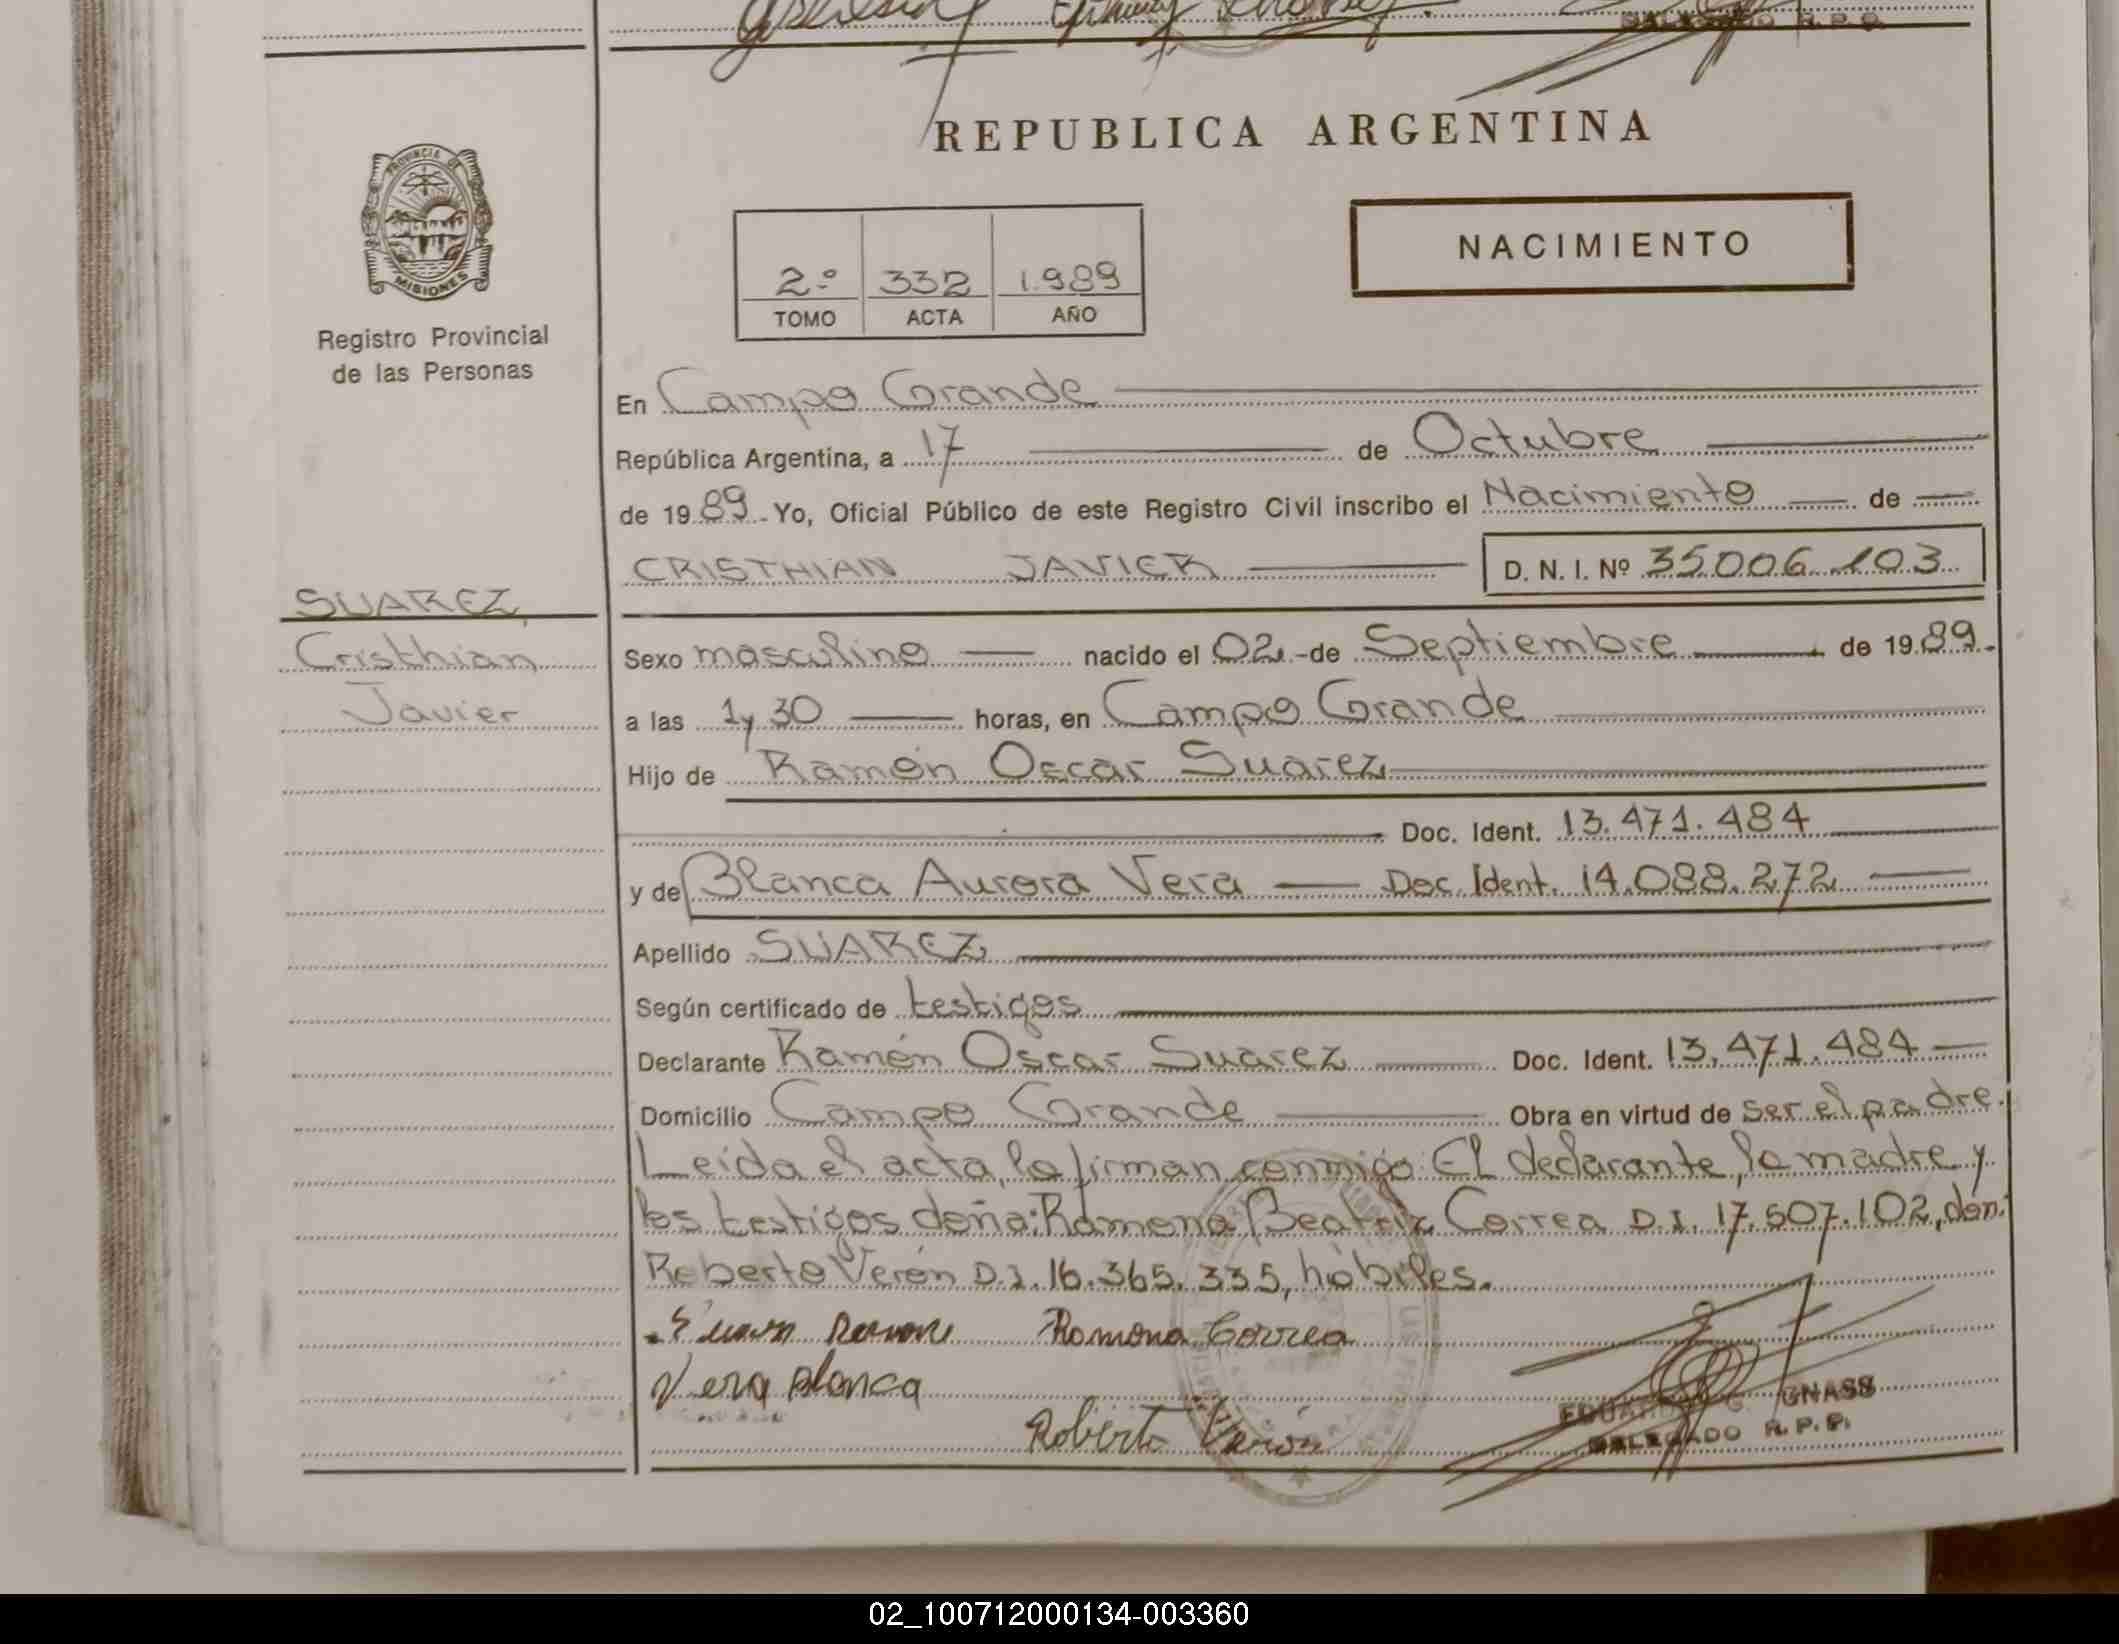 DELEGADO R.P.P.
REPUBLICA ARGENTINA
PROVINCIA DE
MISIONES
Registro Provincial
de las Personas
NACIMIENTO
2.º 332 1.989
TOMO ACTA AÑO
En Campo Grande
República Argentina, a 17 de Octubre
de 1989. Yo, Oficial Público de este Registro Civil inscribo el Nacimiento de
CRISTHIAN JAVIER D. N. I. Nº 35006.103
SUAREZ,
Cristhian
Javier
Sexo masculino nacido el 02 - de Septiembre de 1989.
a las 1 y 30 horas, en Campo Grande
Hijo de Ramón Oscar Suarez
Doc. Ident. 13.471.484
y de Blanca Aurora Vera Doc. Ident. 14.088.272
Apellido SUAREZ
Según certificado de testigos
Declarante Ramón Oscar Suarez Doc. Ident. 13.471.484
Domicilio Campo Grande Obra en virtud de ser el padre.
Leída el acta, la firman conmigo: El declarante, la madre y
los testigos doña: Ramona Beatriz Correa D.I. 17.507.102, don:
Roberto Verón D.I. 16.365.335, hábiles.
Suarez Ramon Ramona Correa
Vera Blanca
Roberto Verón
EDUARDO G. GNASS
DELEGADO R.P.P.
02_100712000134-003360